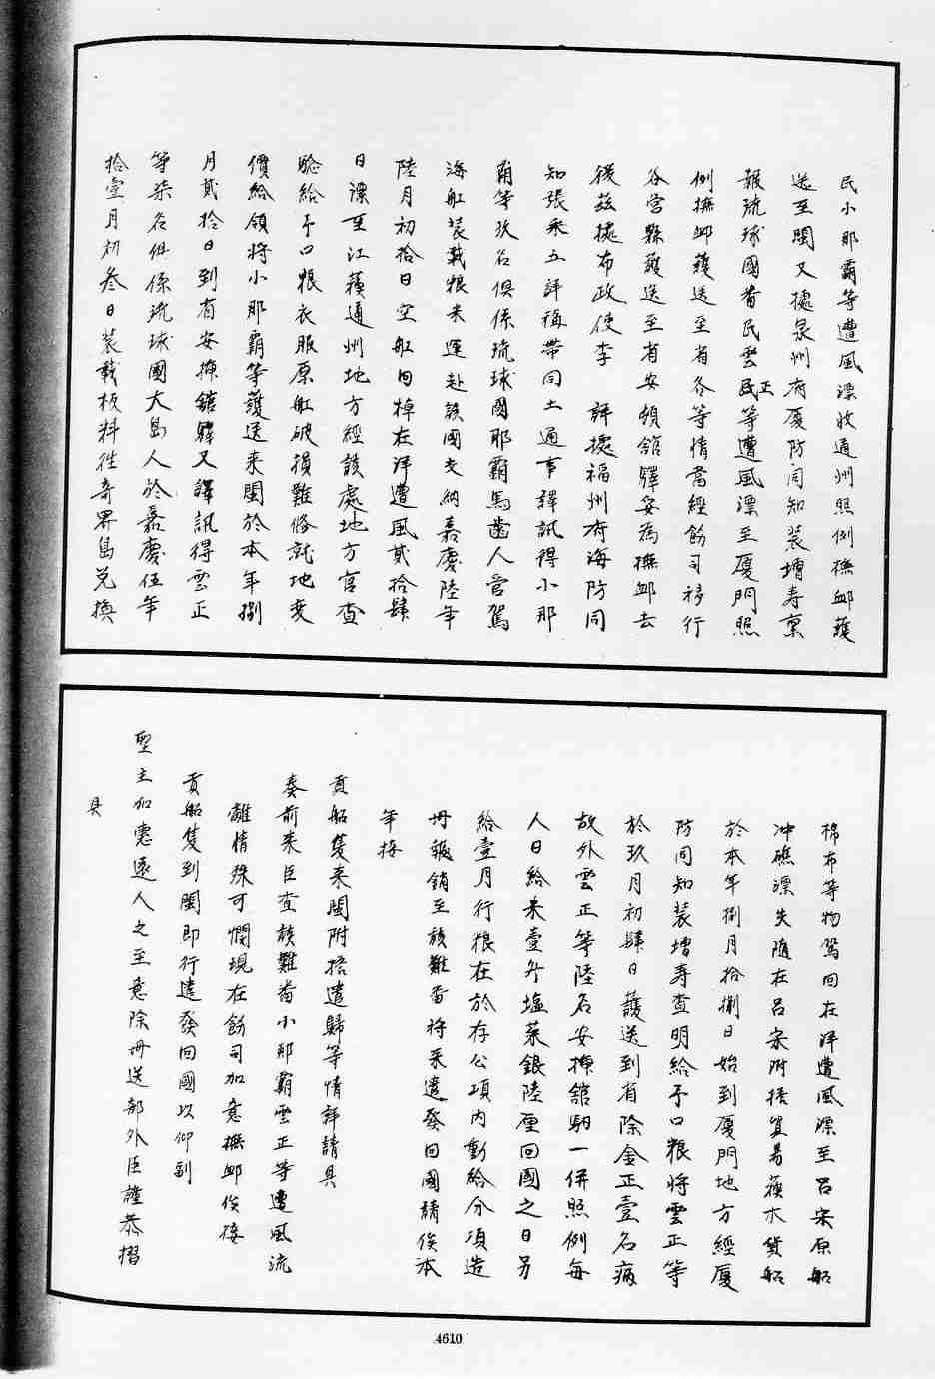 民小那霸等遭風漂收通州照例撫卹護
送至閩又據泉州府厦防同知裘增壽稟
報琉球國番民雲正民等遭風漂至厦門照
例撫卹護送至省各等情當經飭司移行
各營縣護送至省安頓館驛妥為撫卹去
後茲據布政使李 詳據福州府海防同
知張采五詳稱帶同土通事譯訊得小那
霸等玖名俱係琉球國那霸馬齒人當駕
海舡装載粮米運赴該國交納嘉慶陸年
陸月初拾日空舡回掉在洋遭風貳拾肆
日漂至江蘓通州地方經該處地方官查
驗給予口粮衣服原舡破損難修就地変
價給領將小那霸等護送来閩於本年捌
月貳拾日到省安揷館驛又譯訊得雲正
等柒名俱係琉球國大島人於嘉慶伍年
拾壹月初叁日装載板料徃奇界島兑換
棉布等物駕回在洋遭風漂至呂宋原船
冲礁漂失随在呂宋附搭貿易蘓木貨船
於本年捌月拾捌日始到厦門地方經厦
防同知裘增壽查明給予口粮將雲正等
於玖月初肆日護送到省除金正壹名病
故外雲正等陸名安揷館驲一併照例每
人日給米壹升塩菜銀陸厘回國之日另
給壹月行粮在於存公項内動給今項造
册報銷至該難番將来遣發回國請俟本
年接
貢船隻来閩附搭遣歸等情詳請具
奏前来臣查該難番小那霸雲正等遭風流
離情殊可憫現在飭司加意撫卹俟接
貢船隻到閩即行遣發回國以仰副
聖主加惠遠人之至意除册送部外臣謹恭摺
具
4610